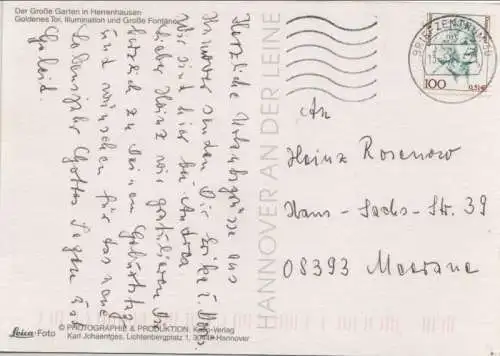 Der Große Garten in Herrenhausen
Goldenes Tor, Illumination und Große Fontäne
Herzliche Urlaubsgrüsse aus
Hannover senden Dir Erika u.
Wir sind hier bei Andrea
Lieber Heinz wir gratulieren Dir
herzlich zu deinem Geburtstag
und wünschen für das neue
Lebensjahr Gottes Segen u.
Geleit.
HANNOVER AN DER LEINE
BRIEFZENTRUM
100
0,51€
An
Heinz Rosenow
Hans-Sachs-Str. 39
08393 Meerane
Leica-Foto
© PHOTOGRAPHIE & PRODUKTION, Verlag
Karl Johaentges, Lichtenbergplatz 1, 30449 Hannover